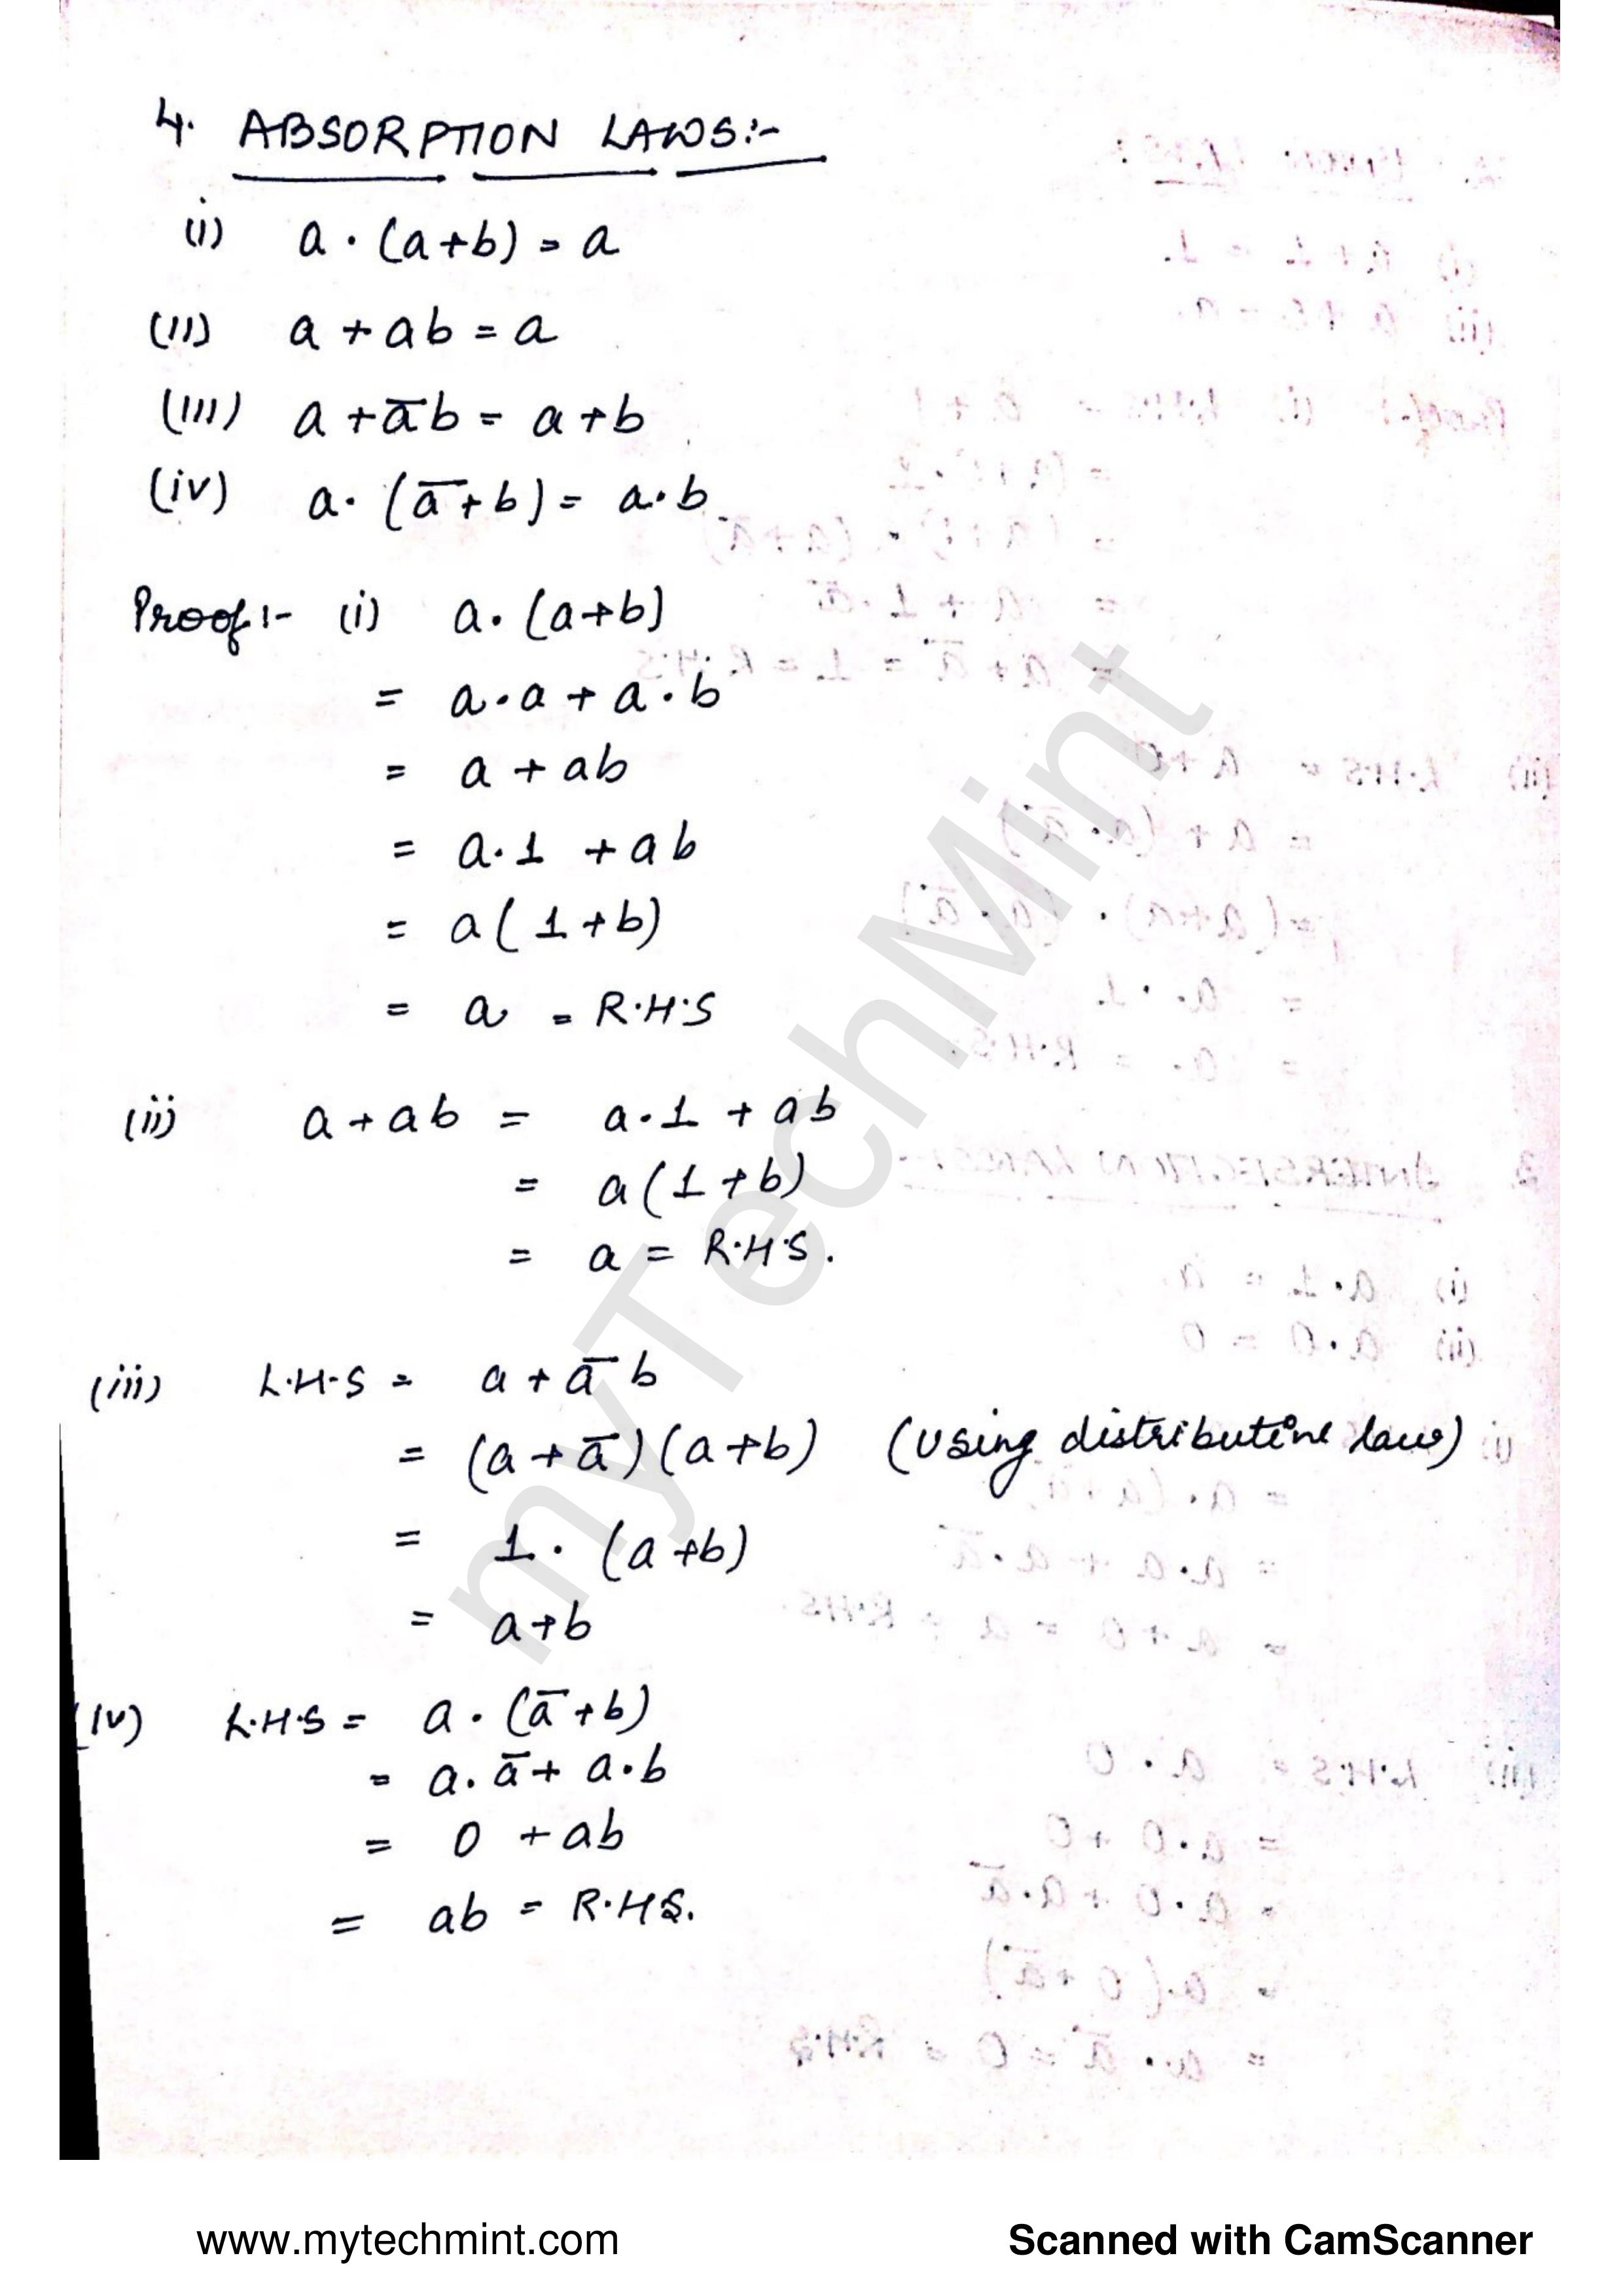 4. ABSORPTION LAWS:-
(i) a · (a+b) = a
(11) a + ab = a
(111) a + a̅b = a + b
(iv) a · (a̅ + b) = a · b
Proof:- (i) a · (a+b)
= a · a + a · b
= a + ab
= a · 1 + ab
= a(1+b)
= a = R.H.S
(ii) a + ab = a · 1 + ab
= a(1+b)
= a = R.H.S.
(iii) L.H.S = a + a̅ b
= (a + a̅)(a+b) (using distributine law)
= 1 · (a+b)
= a+b
(iv) L.H.S = a · (a̅ + b)
= a · a̅ + a · b
= 0 + ab
= ab = R.H.S.
myTechMint
www.mytechmint.com
Scanned with CamScanner